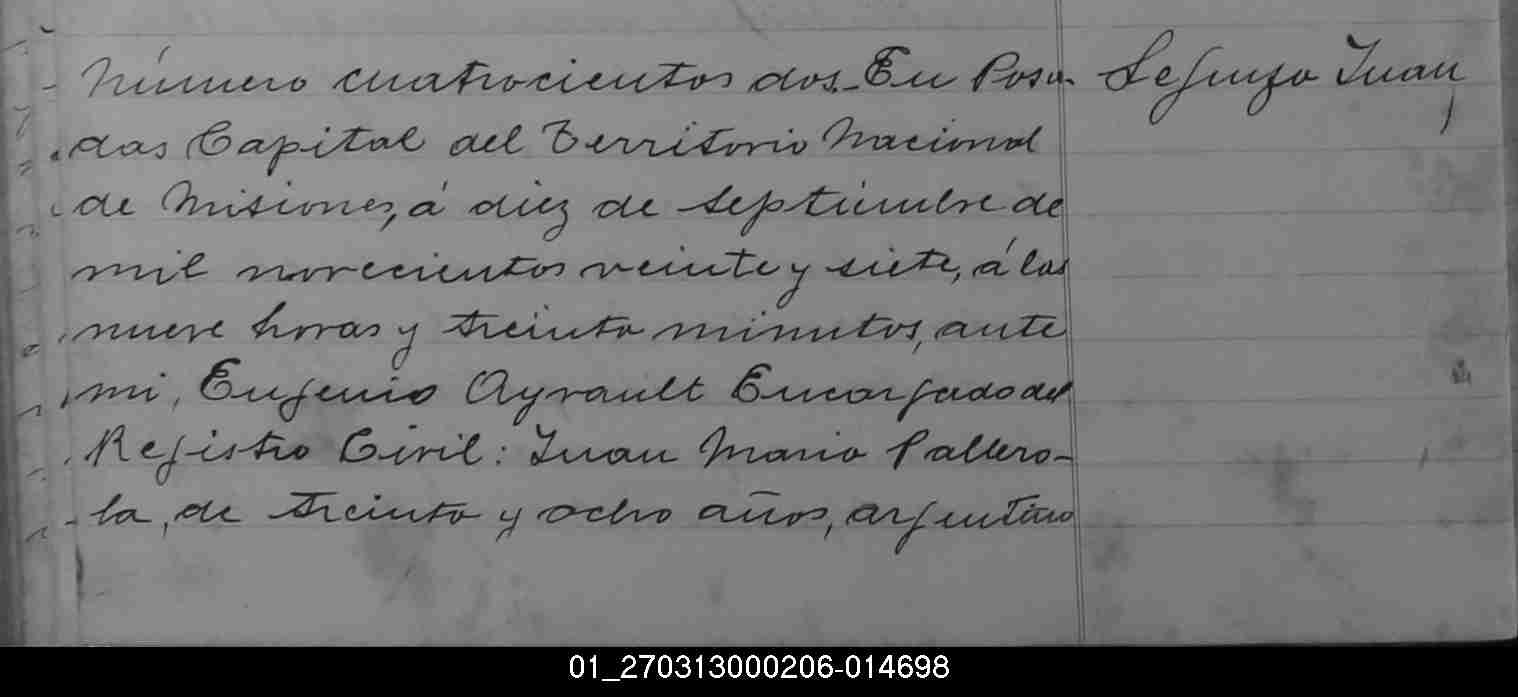 Número cuatrocientos dos.- En Posa- 
das Capital del Territorio Nacional
de Misiones, á diez de septiembre de
mil novecientos veinte y siete, á las
nueve horas y treinta minutos, ante
mi, Eugenio Ayrault Encargado del
Registro Civil: Juan Mario Pallero-
la, de treinta y ocho años, argentino
Juan
01_270313000206-014698